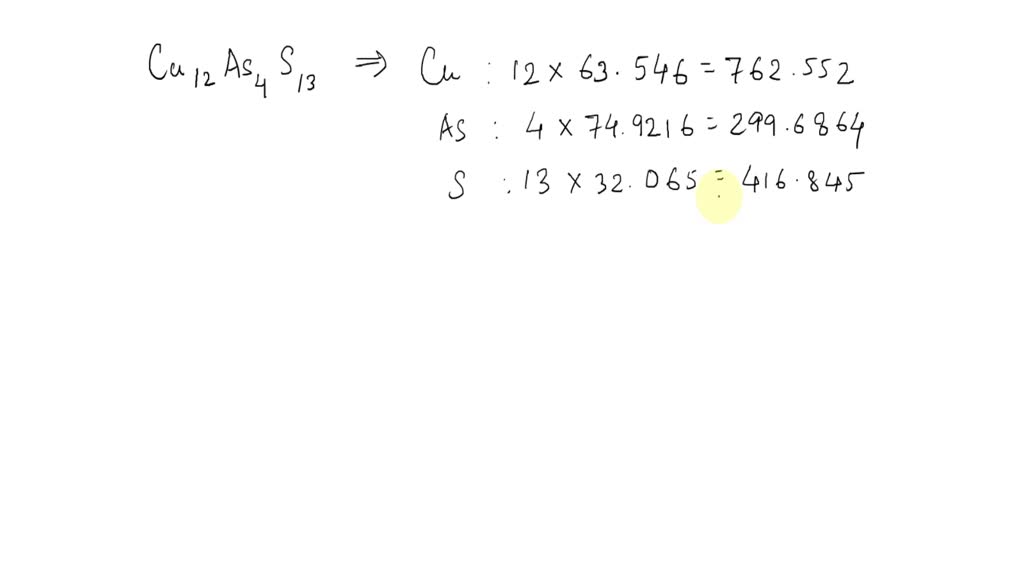 Cu₁₂As₄S₁₃ ⇒ Cu : 12 × 63.546 = 762.552
As : 4 × 74.9216 = 299.6864
S : 13 × 32.065 = 416.845